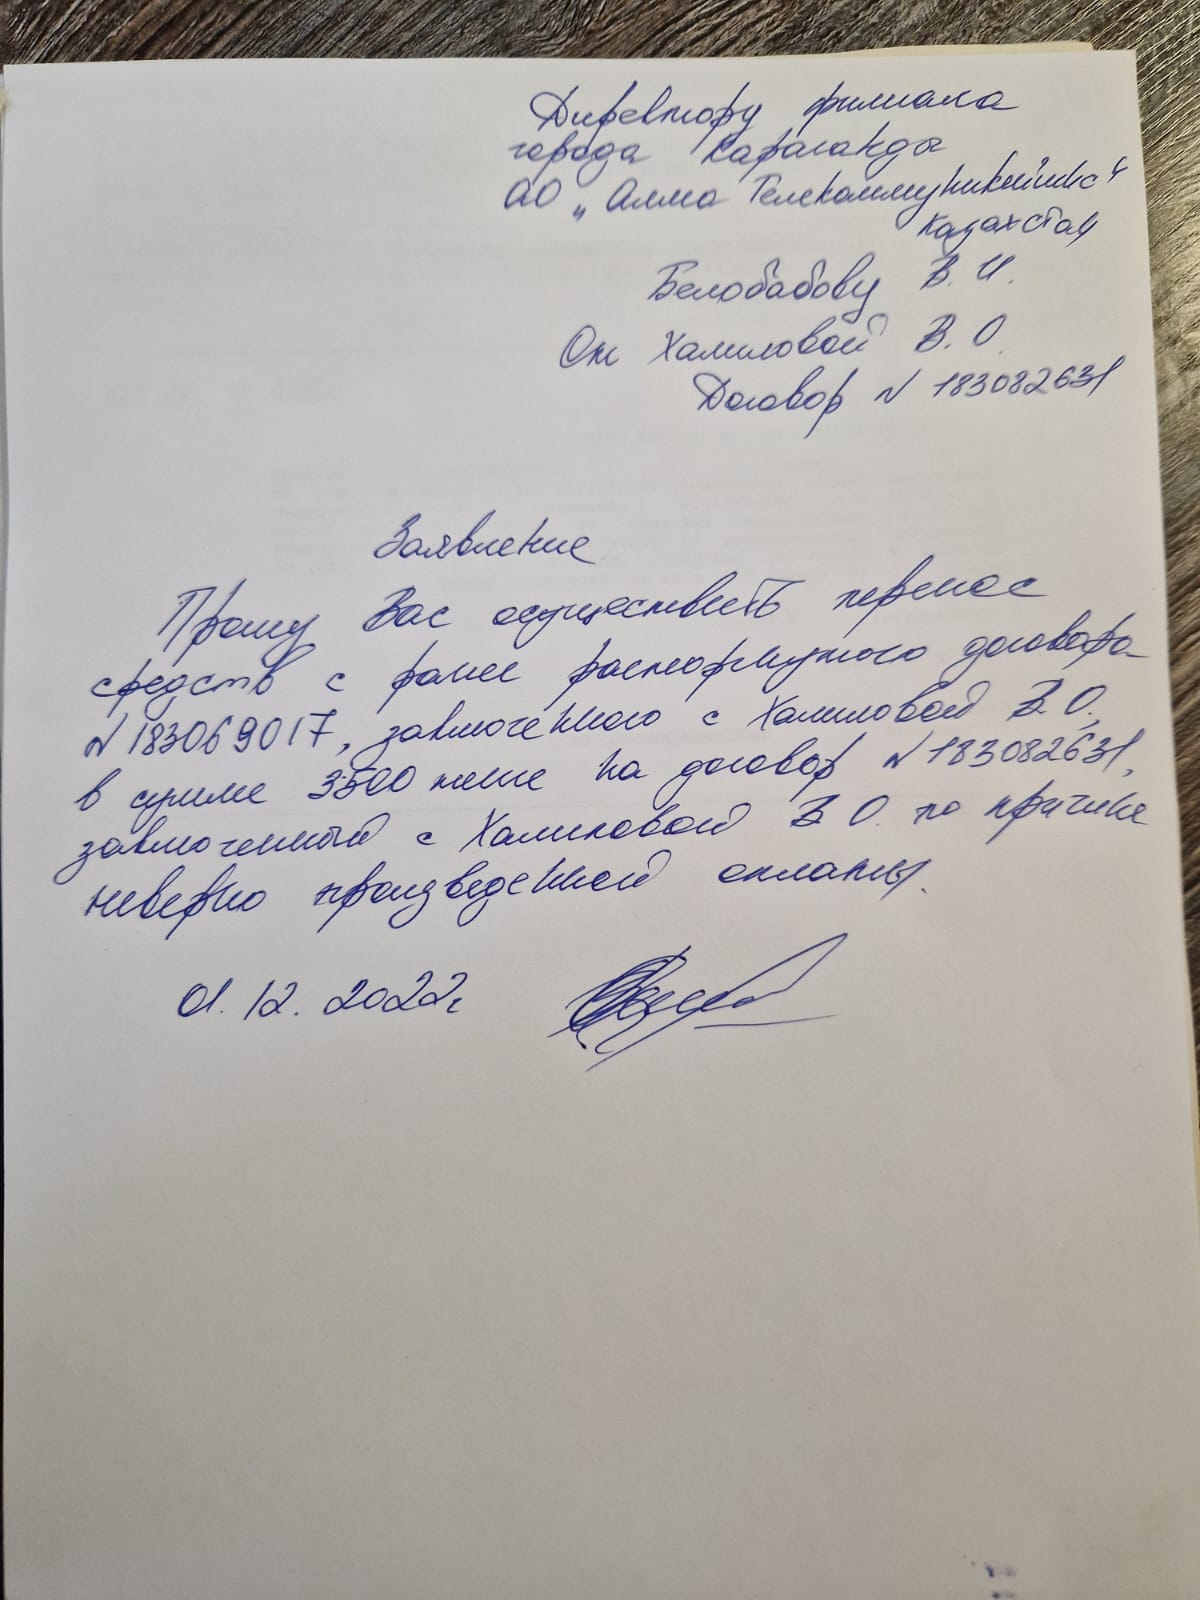 Директору филиала
города Караганды
АО „Алма Телекоммуникейшнс"
Казахстан
Белобабову В. И.
От Халиловой В. О.
Договор N 183082631
Заявление
Прошу Вас осуществить перенос
средств с ранее расторгнутого договора
N 183069017, заключенного с Халиловой В. О,
в сумме 3500 тенге на договор N 183082631,
заключенный с Халиловой В О. по причине
неверно произведенной оплаты.
01. 12. 2022г